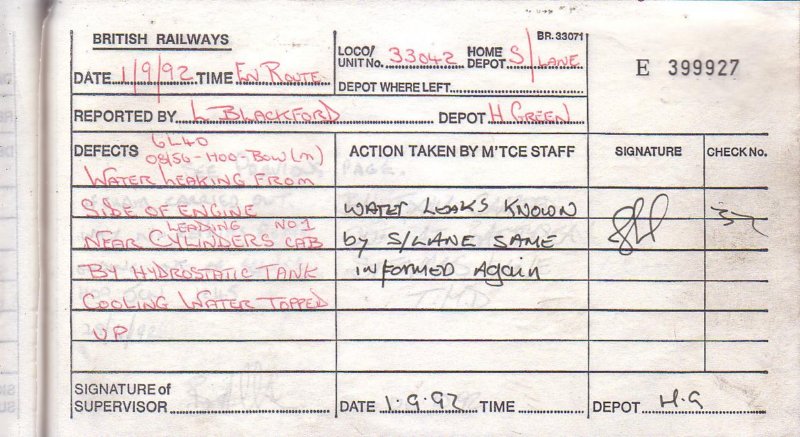 BR. 33071
BRITISH RAILWAYS
LOCO/ UNIT No. 33042 HOME DEPOT S/LANE
E 399927
DATE 1/9/92 TIME EN ROUTE
DEPOT WHERE LEFT
REPORTED BY L BLACKFORD DEPOT H GREEN
6L40
DEFECTS 0815G-HOO-BOW (M)
ACTION TAKEN BY M'TCE STAFF
SIGNATURE
CHECK No.
WATER LEAKING FROM
SIDE OF ENGINE
LEADING NO 1
NEAR CYLINDERS CAB
BY HYDROSTATIC TANK
COOLING WATER TOPPED
UP
WATER LEAKS KNOWN
by S/LANE SAME
informed Again
SIGNATURE of
SUPERVISOR
DATE 1.9.92 TIME
DEPOT H.G